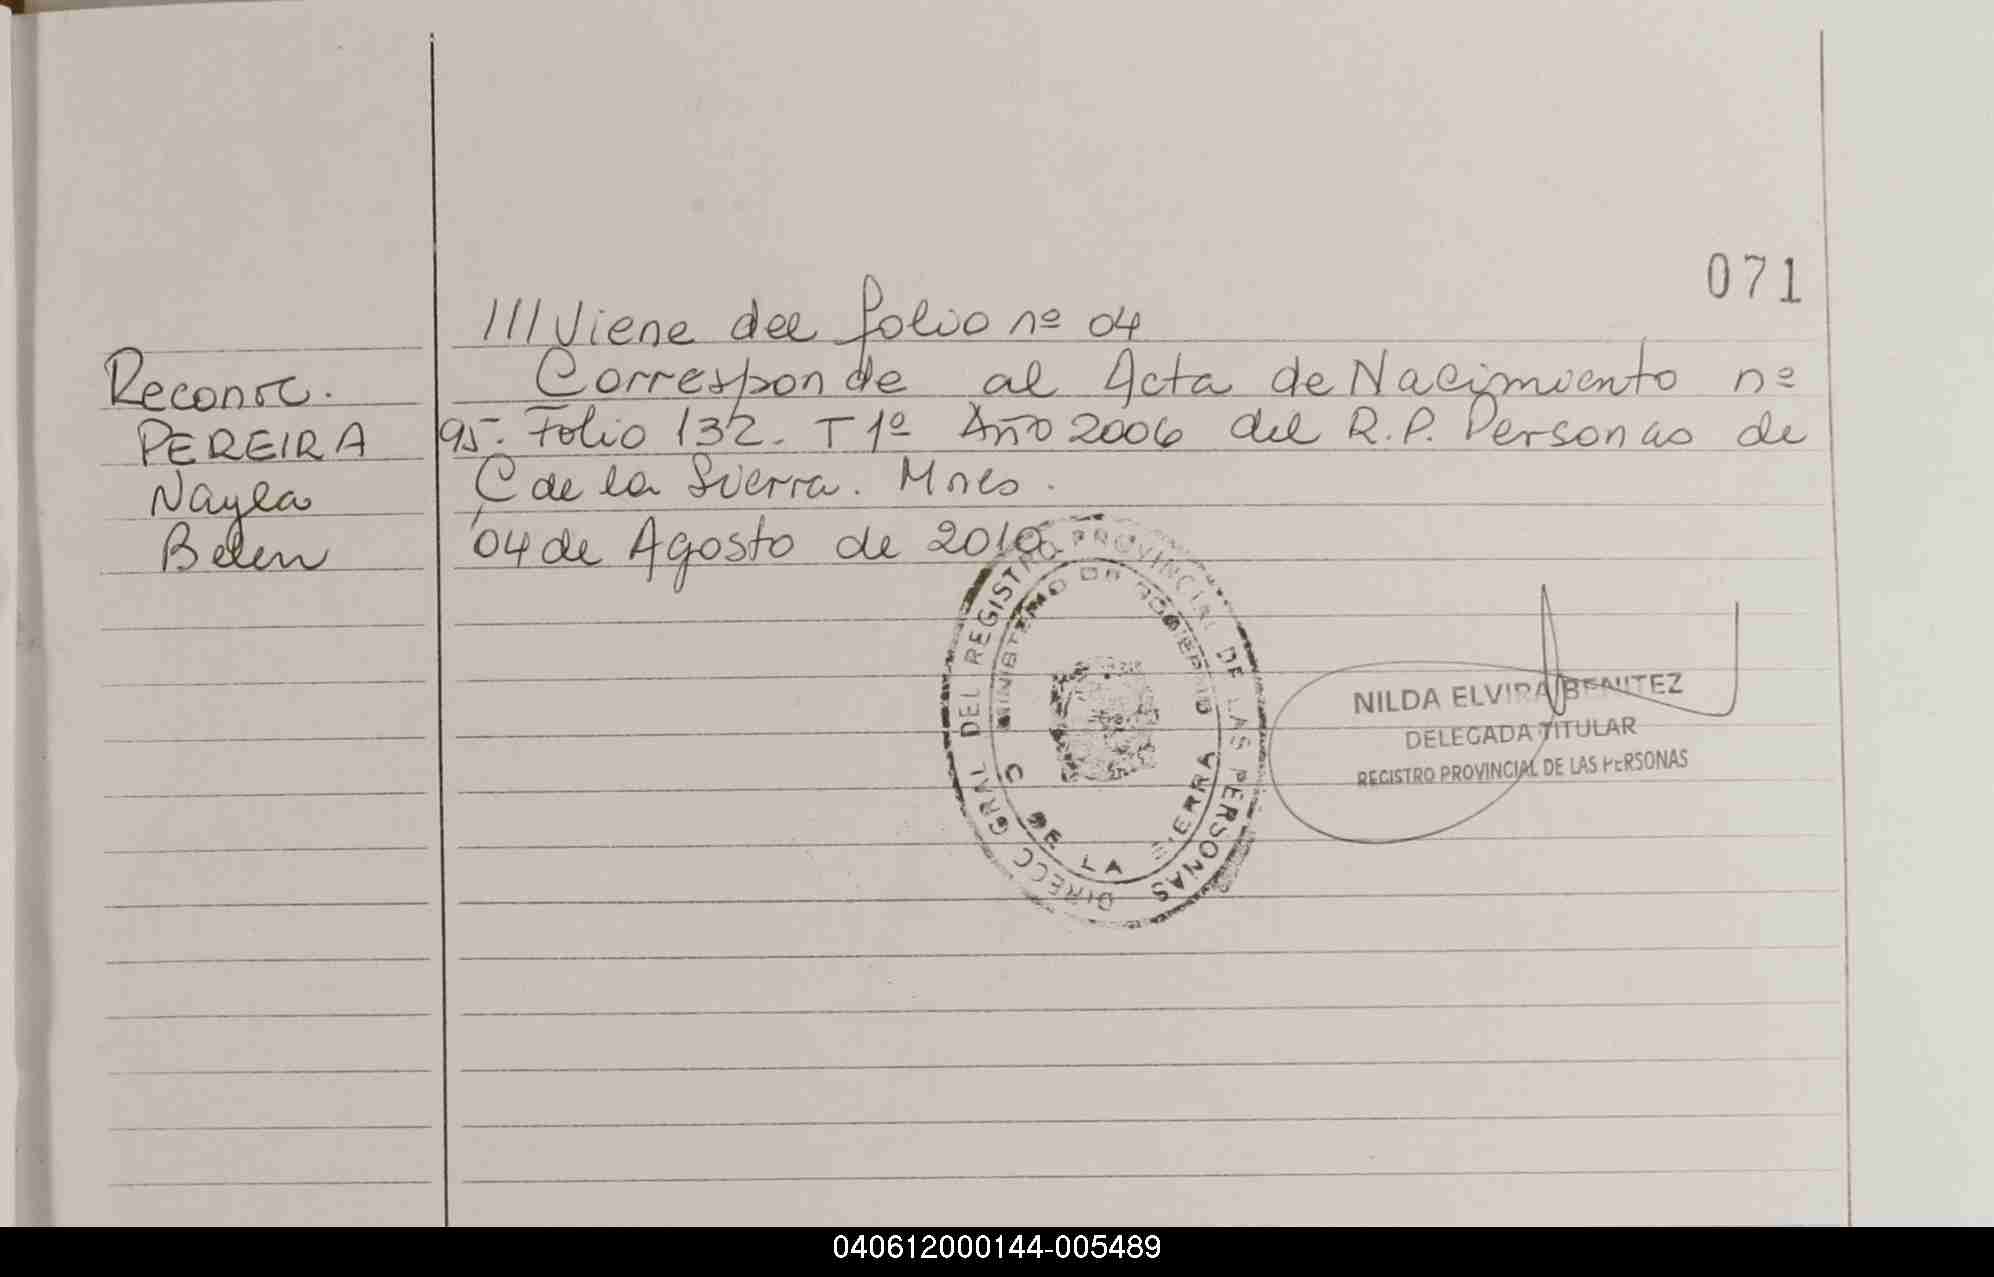 071
///Viene del folio nº 04
Corresponde al Acta de Nacimiento nº
95. Folio 132. T 1º Año 2006 del R.P. Personas de
C de la Sierra. Mnes.
04 de Agosto de 2010.
Reconoc.
PEREIRA
Nayla
Belen
DIRECC GRAL DEL REGISTRO PROVINCIAL DE LAS PERSONAS
MINISTERIO DE GOBIERNO
C DE LA SIERRA
NILDA ELVIRA BENITEZ
DELEGADA TITULAR
REGISTRO PROVINCIAL DE LAS PERSONAS
040612000144-005489